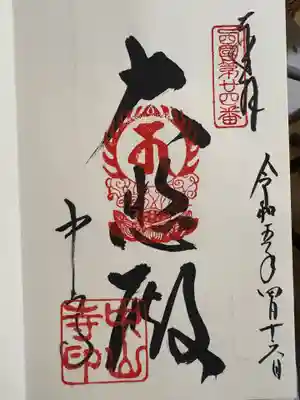 奉拝
西国第廿四番
令和五年四月十六日
大悲殿
中山寺
中山寺印